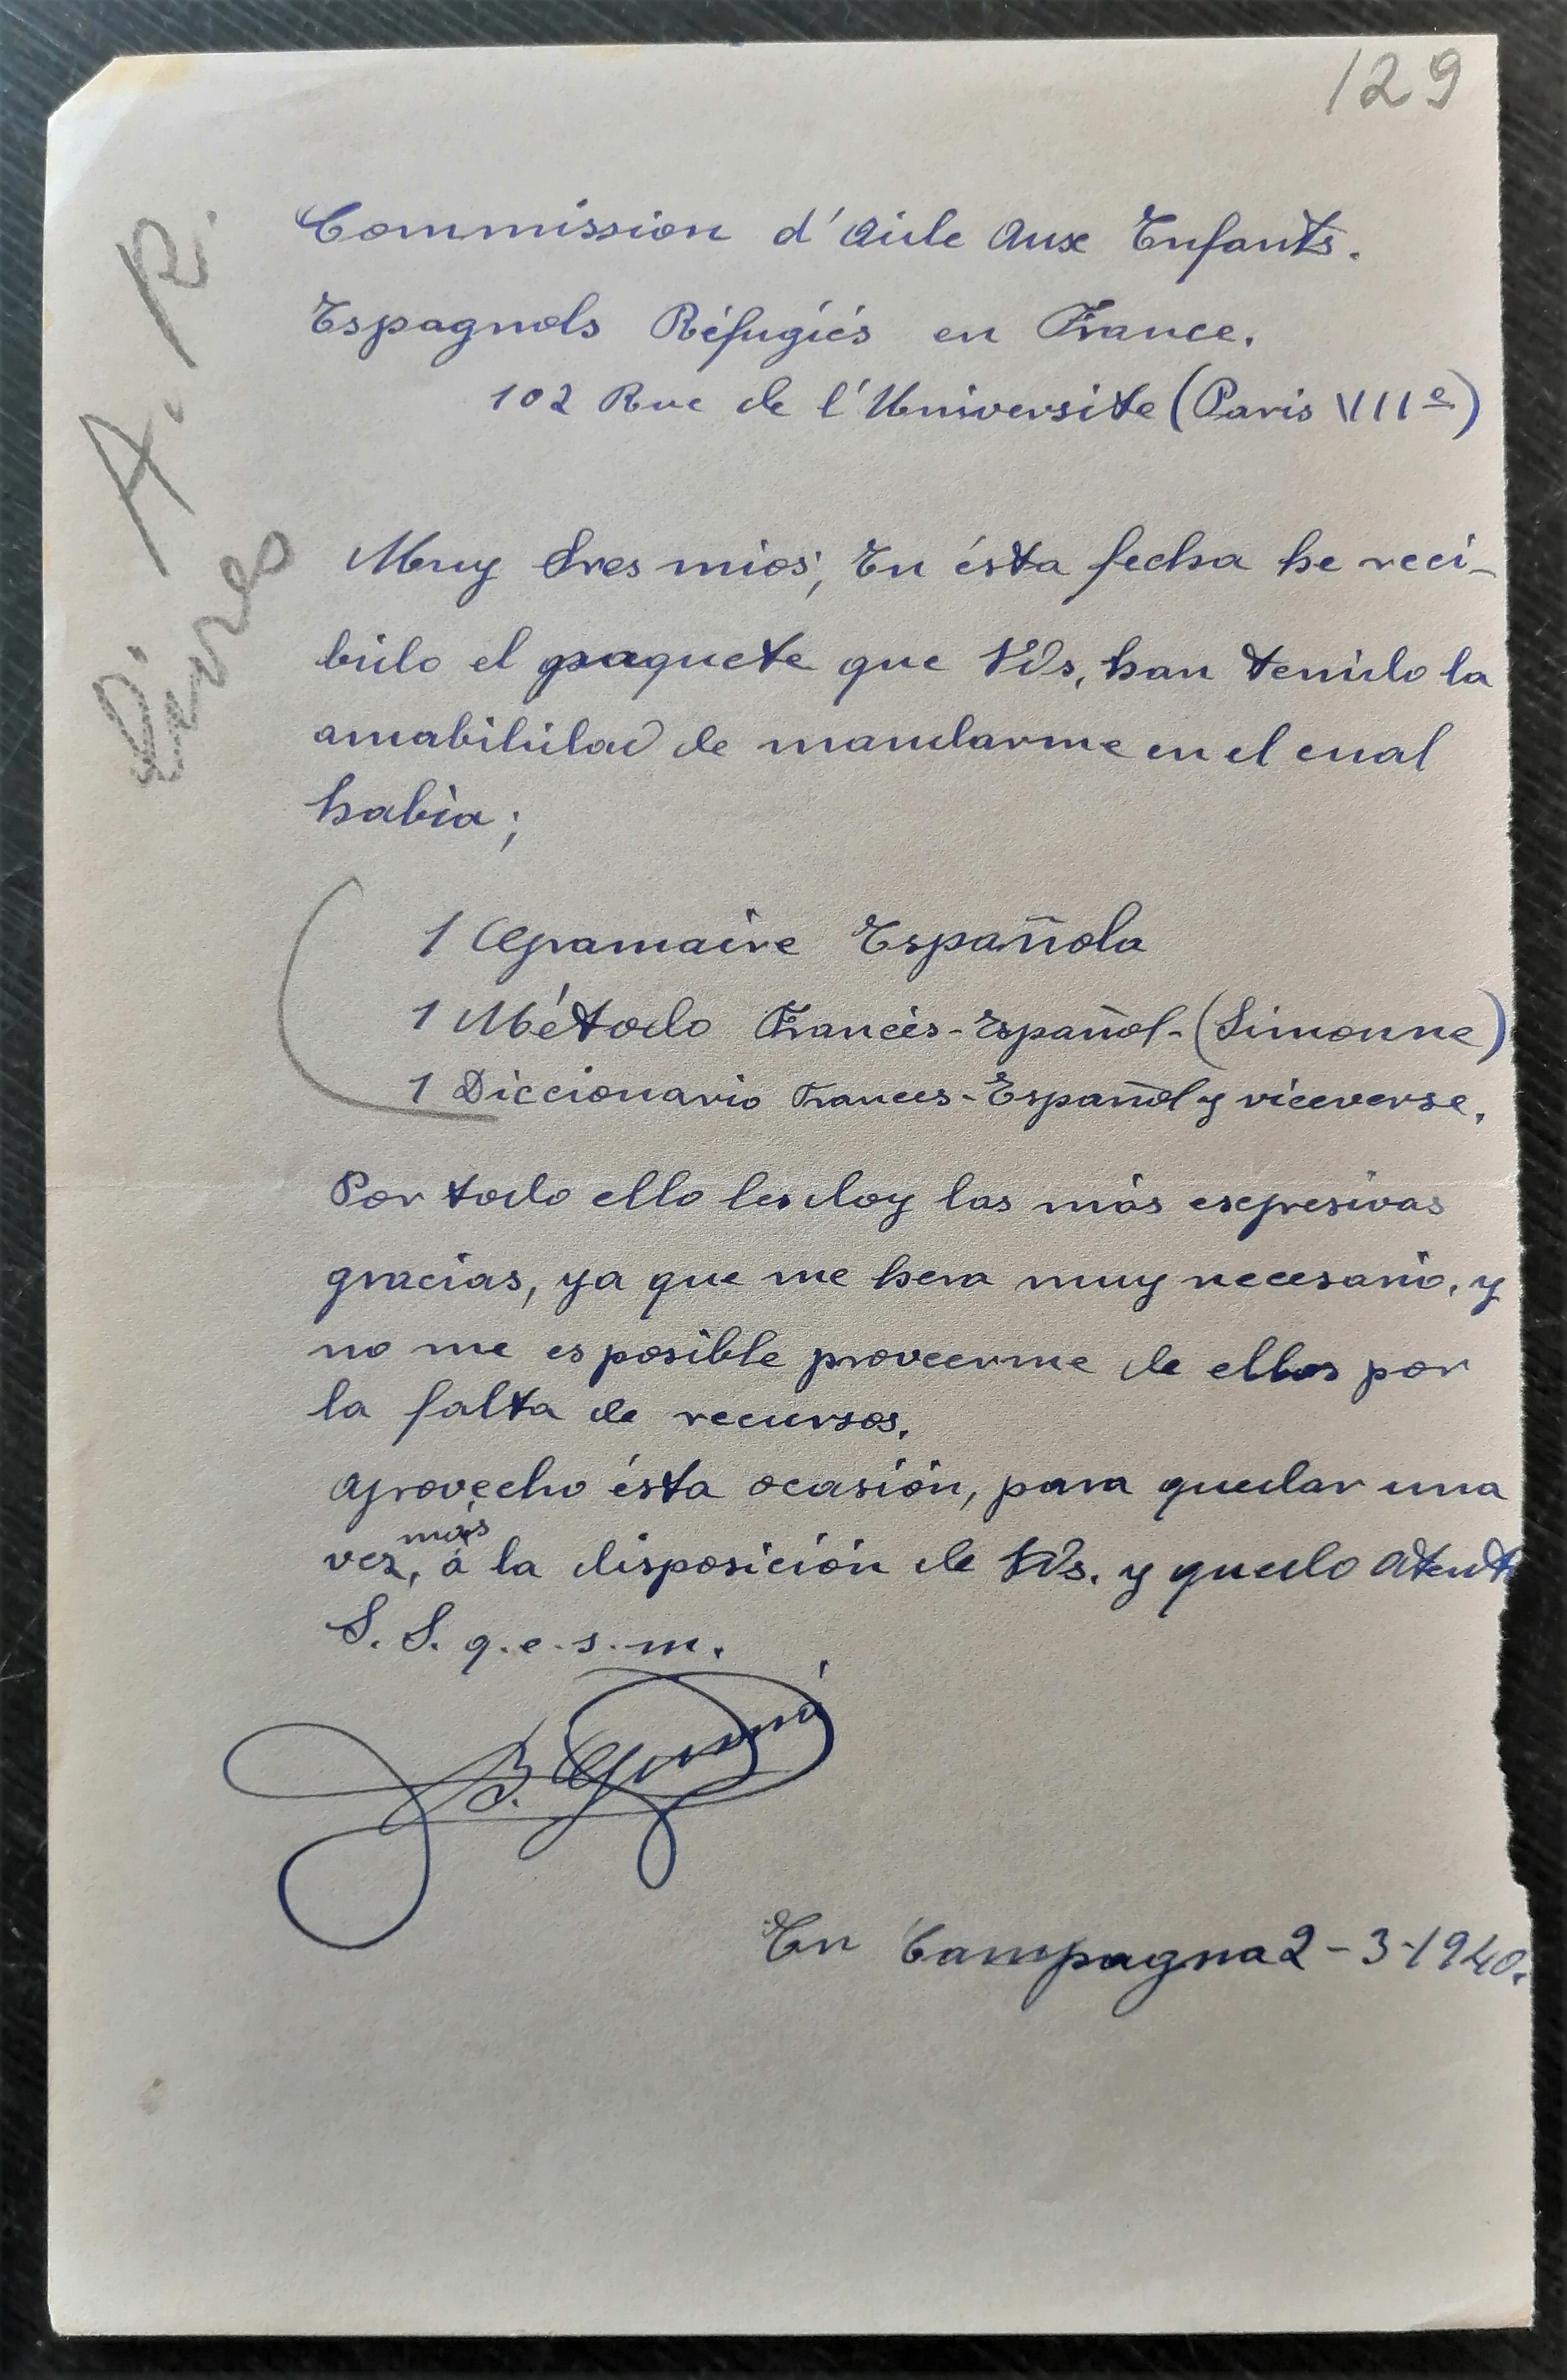 129
A. R.
Livres
Commission d'Aide Aux Enfants.
Espagnols Réfugiés en France.
102 Rue de l'Universite (Paris VIIe)
Muy Sres mios; En ésta fecha he reci-
bido el paquete que Vds, han tenido la
amabilidad de mandarme en el cual
habia;
1 Gramaire Española
1 Método Francés-Español-(Simonne)
1 Diccionario Frances-Español y viceverse.
Por todo ello les doy las más espresivas
gracias, ya que me hera muy necesario, y
no me es posible proveerme de ellos por
la falta de recursos.
Aprovecho ésta ocasión, para quedar una
más
vez, á la disposición de Vds. y quedo atent
S. S. q. e. s. m.
En Campagna 2-3-1940.